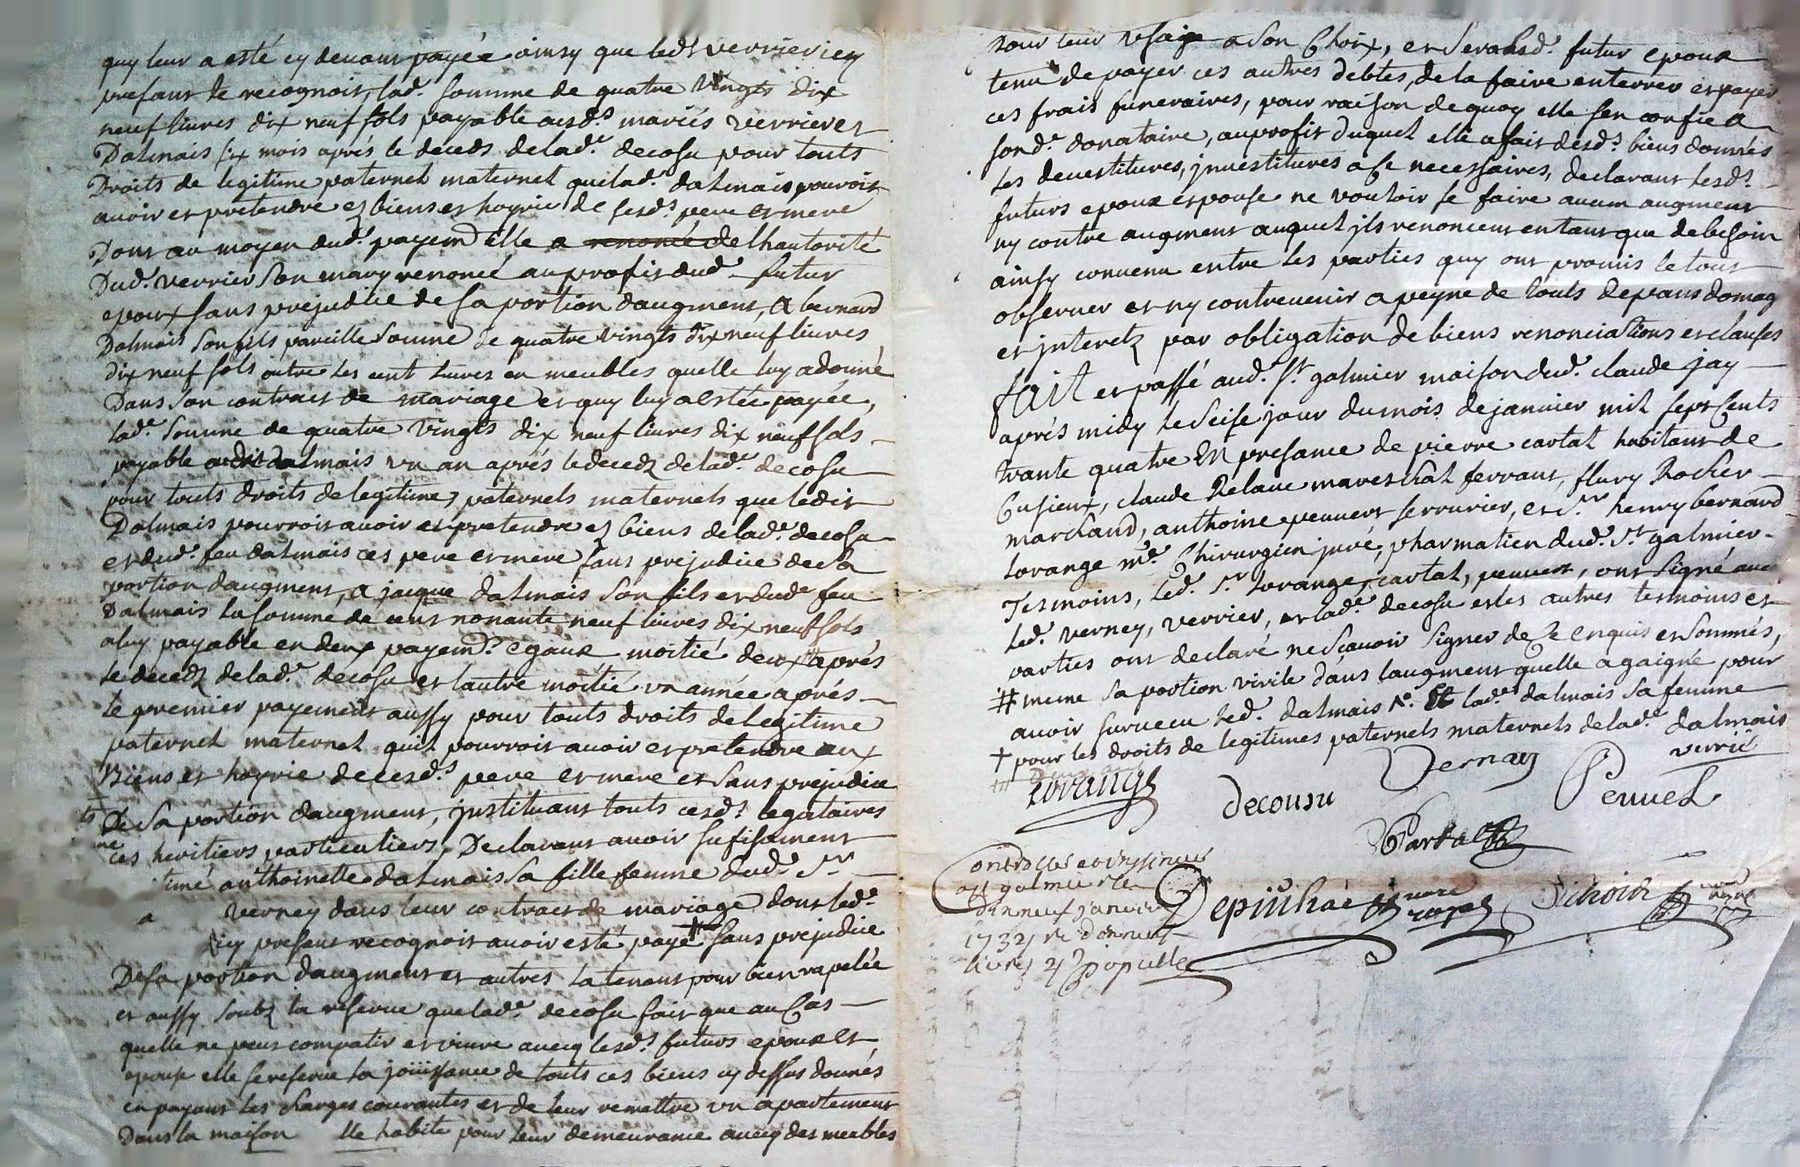 quy leur a esté cy devant payée ainsy que led. verrier icy
presant le recognoit, lad. somme de quatre vingts dix
neuf livres dix neuf sols payable ausd.s mariés verrier et
Dalmais six mois aprés le deceds de lad.e decosu pour touts
Droits de legitime paternel maternel que lad. dalmais pouvoit
avoir et pretendre ez biens et hoyrie de sesd.s pere et mere
Dont au moyen dud. payem.t elle a renoncé de lhautorité
Dud. verrier son mary renoncé au profit dud. futur
epoux sans prejudice de sa portion daugment, A bernard
Dalmais son fils pareille somme de quatre vingts dix neuf livres
dix neuf sols outre les cent livres en meubles quelle luy a donné
Dans son contract de mariage et quy luy a estée payée,
lad.e somme de quatre vingts dix neuf livres dix neuf sols
payable audit dalmais un an aprés le decedz de lad.e decosu
pour touts droits de legitime, paternels maternels que ledit
Dalmais pourroit avoir et pretendre ez biens de lad.e decosu
et dud. feu dalmais ces pere et mere sans prejudice de sa
portion daugment, a jacque dalmais son fils et dud. feu
Dalmais la somme de cent nonante neuf livres dix neuf sols
a luy payable en deux payem.ts egaux moitié deux ans aprés
le decedz de lad.e decosu et lautre moitié un année aprés
le premier payement aussy pour touts droits de legitime
paternel maternel quil pourroit avoir et pretendre aux
Biens et hoyrie de cesd.s pere et mere et sans prejudice
De sa portion daugment, instituant touts cesd.s legataires
ces heritiers particuliers, Declarant avoir sufisament
anthoinette dalmais sa fille femme dud. S.r
verney dans leur contract de mariage dont led.e
icy presant recognoit avoir esté payé sans prejudice
De sa portion daugment et autres la tenant pour bien rapelée
et aussy soubz la reserve que lad.e decosu fait que au cas
quelle ne peut compatir et vivre avecq lesd.s futurs epoux et
epouse elle se reserve la joüissance de touts ces biens cy dessus donnés
en payant les charges courantes et de leur remettre un apartement
Dans la maison elle habite pour leur demeurance avecq des meubles
pour leur usage a son choix, et sera led. futur epoux
tenu de payer ces autres debtes, de la faire enterrer et payer
ces frais funeraires, pour raison de quoy elle sen confie a
sond.e donataire, au profit duquel elle a fait desd.s biens donnés
les devestitures, jnvestitures a ce necessaires, declarant lesd.s
futurs epoux et epouse ne vouloir se faire aucun augment
ny contre augment auquel jls renoncent en tant que de besoin
ainsy convenu entre les parties quy ont promis le tout
observer et ny contrevenir a peyne de touts depans domag
et jnteretz par obligation de biens renonciations et clauses
fait et passé aud. S.t galmier maison dud. claude jay
aprés midy le seise jour du mois de janvier mil sept cents
trante quatre en presance de pierre cartal habitant de
Cusieux, claude Relave mareschal ferrant, flury Rocher
marchand, anthoine peuvert serrurier, et S.r henry bernard
Lorange m.e Chirurgien juré, pharmatien dud. S.t galmier
Tesmoins, led. S.r Lorange, cartal, peuvert, ont signé avec
led. verney, verrier, et lad.e decosu et les autres tesmoins et
parties ont declaré ne scavoir signer de ce enquis et sommés,
# meme sa portion virile dans laugment quelle a gaigné pour
avoir survecu led. dalmais N.o Et lad.e dalmais sa femme
+ pour les droits de legitimes paternels maternels de lad.e dalmais
Lorange decousu Vernay Peuvel verrié
Cartal
Controllé et insinué
a S.t galmier le
dixneuf janvier
1734 re dix neuf
livres
Depiuhac